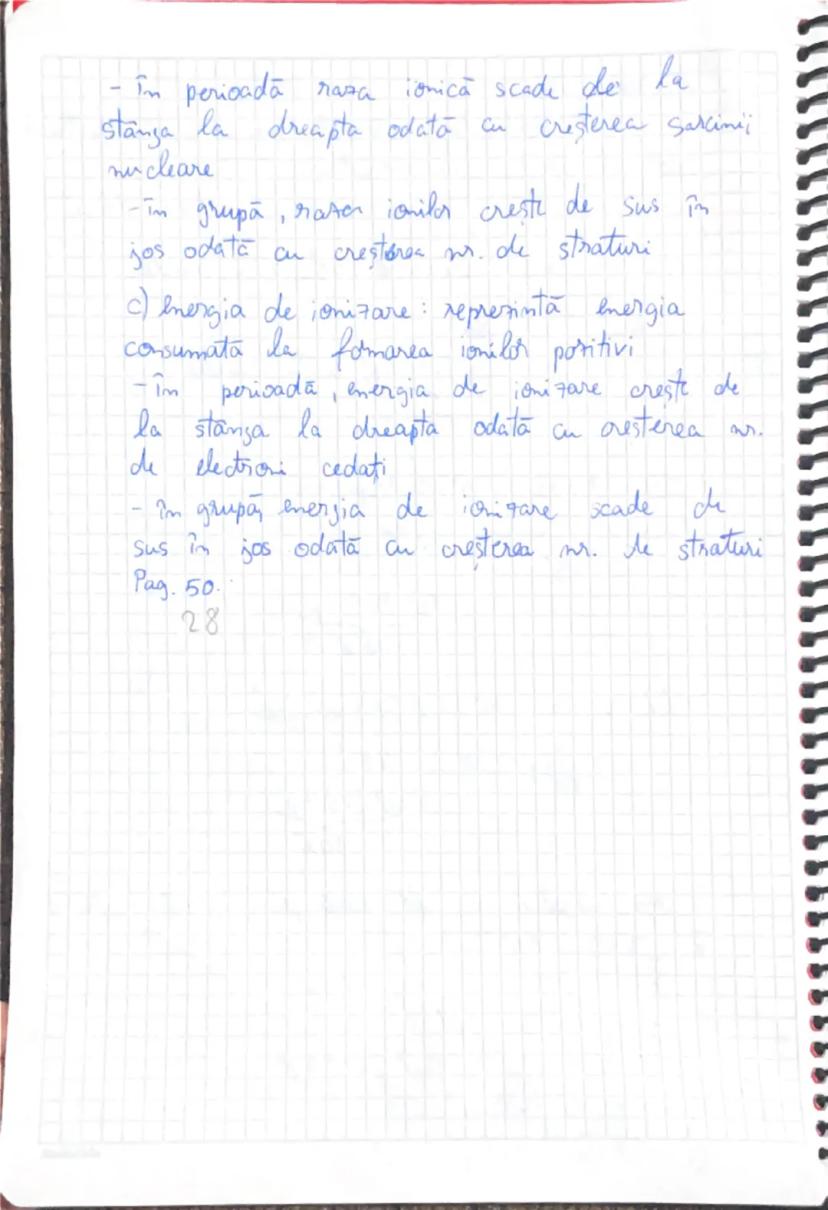 - În perioadă raza ionică scade de la
stânga la dreapta odată cu creșterea sarcinii
nucleare
- în grupă, raza ionilor crește de sus în
jos odată cu creșterea nr. de straturi
c) Energia de ionizare : reprezintă energia
consumată la formarea ionilor pozitivi
- în perioadă, energia de ionizare crește de
la stânga la dreapta odată cu creșterea nr.
de electroni cedați
- în grupă, energia de ionizare scade de
sus în jos odată cu creșterea nr. de straturi
Pag. 50.
28